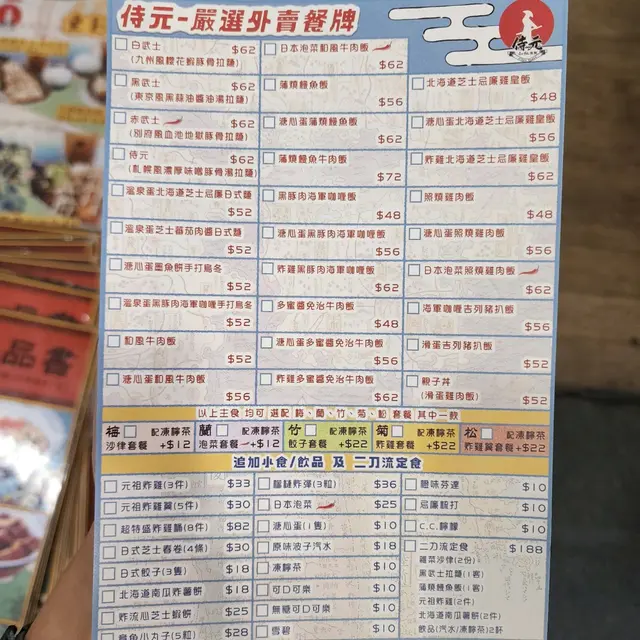 侍元-嚴選外賣餐牌
侍元
白武士 $62
(九州風櫻花蝦豚骨拉麵)
黑武士 $62
(東京風黑蒜油醬油湯拉麵)
赤武士 $62
(別府風血池地獄豚骨拉麵)
侍元 $62
(札幌風濃厚味噌豚骨湯拉麵)
溫泉蛋北海道芝士忌廉日式麵
$52
溫泉蛋芝士蕃茄肉醬日式麵
$52
溏心蛋墨魚餅手打烏冬
$52
溫泉蛋黑豚肉海軍咖喱手打烏冬
$52
和風牛肉飯
$52
溏心蛋和風牛肉飯
$56
日本泡菜和風牛肉飯
$62
蒲燒鰻魚飯
$56
溏心蛋蒲燒鰻魚飯
$62
蒲燒鰻魚牛肉飯
$72
黑豚肉海軍咖喱飯
$48
溏心蛋黑豚肉海軍咖喱飯
$56
炸雞黑豚肉海軍咖喱飯
$62
多蜜醬免治牛肉飯
$48
溏心蛋多蜜醬免治牛肉飯
$56
炸雞多蜜醬免治牛肉飯
$62
北海道芝士忌廉雞皇飯
$48
溏心蛋北海道芝士忌廉雞皇飯
$56
炸雞北海道芝士忌廉雞皇飯
$62
照燒雞肉飯
$48
溏心蛋照燒雞肉飯
$56
日本泡菜照燒雞肉飯
$62
海軍咖喱吉列豬扒飯
$56
滑蛋吉列豬扒飯
$52
親子丼
(滑蛋雞肉飯) $52
以上主食 均可 選配 梅、蘭、竹、菊、松 套餐 其中一款
梅 配凍檸茶
沙律套餐 +$12
蘭 配凍檸茶
泡菜套餐 +$12
竹 配凍檸茶
餃子套餐 +$22
菊 配凍檸茶
炸雞套餐 +$22
松 配凍檸茶
炸雞翼套餐 +$22
追加小食/飲品 及 二刀流定食
元祖炸雞(3件) $33
元祖炸雞翼(5件) $30
超特盛炸雞腩(8件) $82
日式芝士春卷(4條) $30
日式餃子(3隻) $18
北海道南瓜炸薯餅 $18
炸流心芝士蝦餅 $25
章魚小丸子(5粒) $28
炸彈(3粒) $36
日本泡菜 $25
溏心蛋(1隻) $10
原味波子汽水 $18
凍檸茶 $10
可口可樂 $10
無糖可口可樂 $10
雪碧 $10
橙味芬達 $10
忌廉梳打 $10
C.C.檸檬 $10
二刀流定食 $188
雞菜沙律(2份)
黑武士拉麵(1客)
蒲燒鰻魚飯(1客)
元祖炸雞(2件)
北海道南瓜薯餅(2件)
飲品(汽水/凍檸茶)2杯